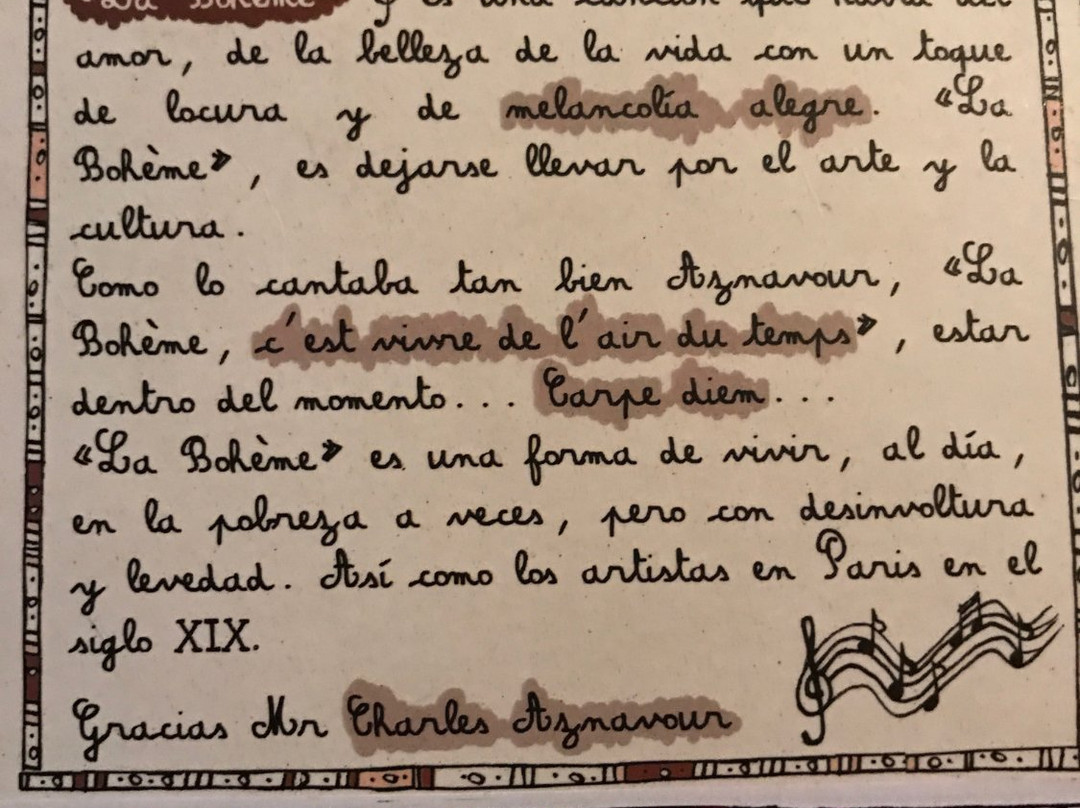 "La Bohème" y es una canción que habla del
amor, de la belleza de la vida con un toque
de locura y de melancolía alegre. «La
Bohème», es dejarse llevar por el arte y la
cultura.
Como lo cantaba tan bien Aznavour, «La
Bohème, c'est vivre de l'air du temps», estar
dentro del momento... Carpe diem...
«La Bohème» es una forma de vivir, al día,
en la pobreza a veces, pero con desinvoltura
y levedad. Así como los artistas en Paris en el
siglo XIX.
Gracias Mr Charles Aznavour